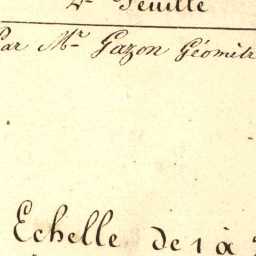 2e Feuille
Par Mr Gazon Géomètr
Echelle de 1 à 2